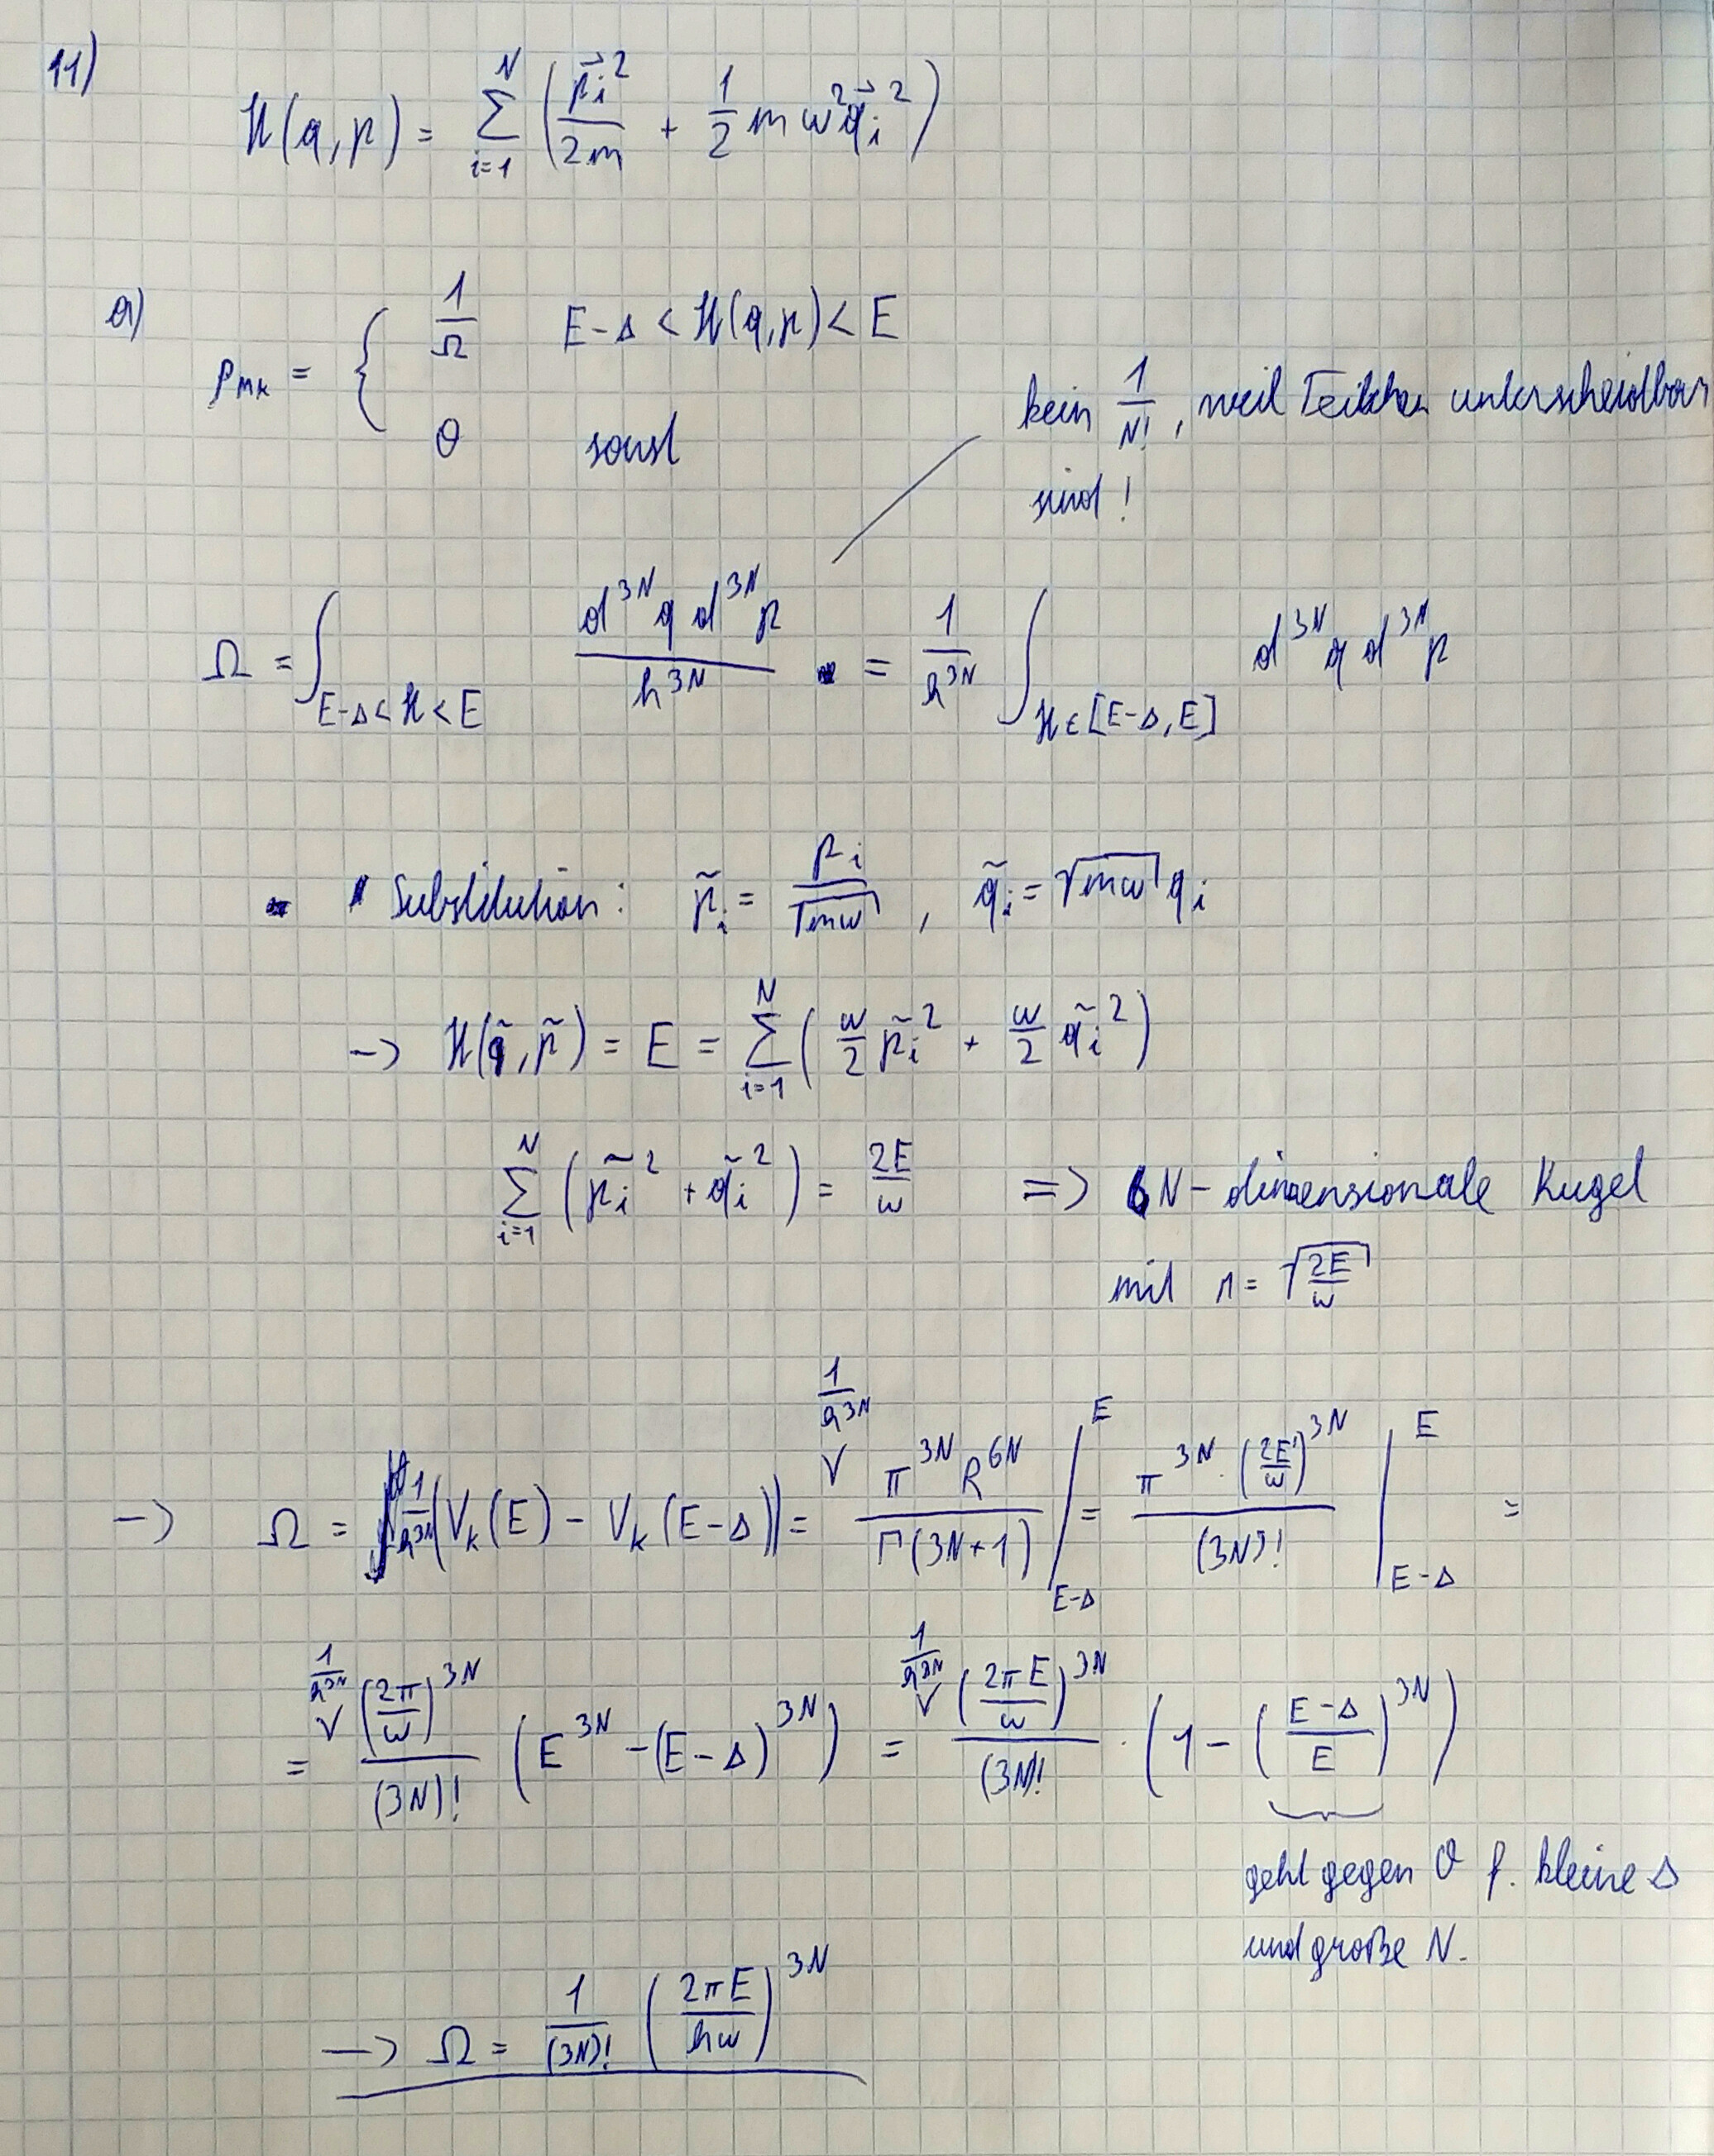 11)
H(q,p) = Σ_{i=1}^{N} ( p⃗_i² / 2m + 1/2 m ω² q⃗_i² )
a)
ρ_mk = { 1/Ω   E-Δ < H(q,p) < E
0   sonst
kein 1/N!, weil Teilchen unterscheidbar
sind!
Ω = ∫_{E-Δ<H<E} d^{3N}q d^{3N}p / h^{3N} = 1/h^{3N} ∫_{H∈[E-Δ,E]} d^{3N}q d^{3N}p
Substitution: p̃_i = p_i / √(mω) , q̃_i = √(mω) q_i
-> H(q̃,p̃) = E = Σ_{i=1}^{N} ( ω/2 p̃_i² + ω/2 q̃_i² )
Σ_{i=1}^{N} ( p̃_i² + q̃_i² ) = 2E/ω => 6N-dimensionale Kugel
mit r = √(2E/ω)
-> Ω = 1/h^{3N} (V_k(E) - V_k(E-Δ)) = 1/h^{3N} π^{3N} R^{6N} / Γ(3N+1) |_{E-Δ}^{E} = π^{3N} · (2E'/ω)^{3N} / (3N)! |_{E-Δ}^{E} =
= 1/h^{3N} (2π/ω)^{3N} / (3N)! ( E^{3N} - (E-Δ)^{3N} ) = 1/h^{3N} (2πE/ω)^{3N} / (3N)! · ( 1 - ( (E-Δ)/E )^{3N} )
geht gegen 0 f. kleine Δ
und große N.
-> Ω = 1/(3N)! ( 2πE / hω )^{3N}